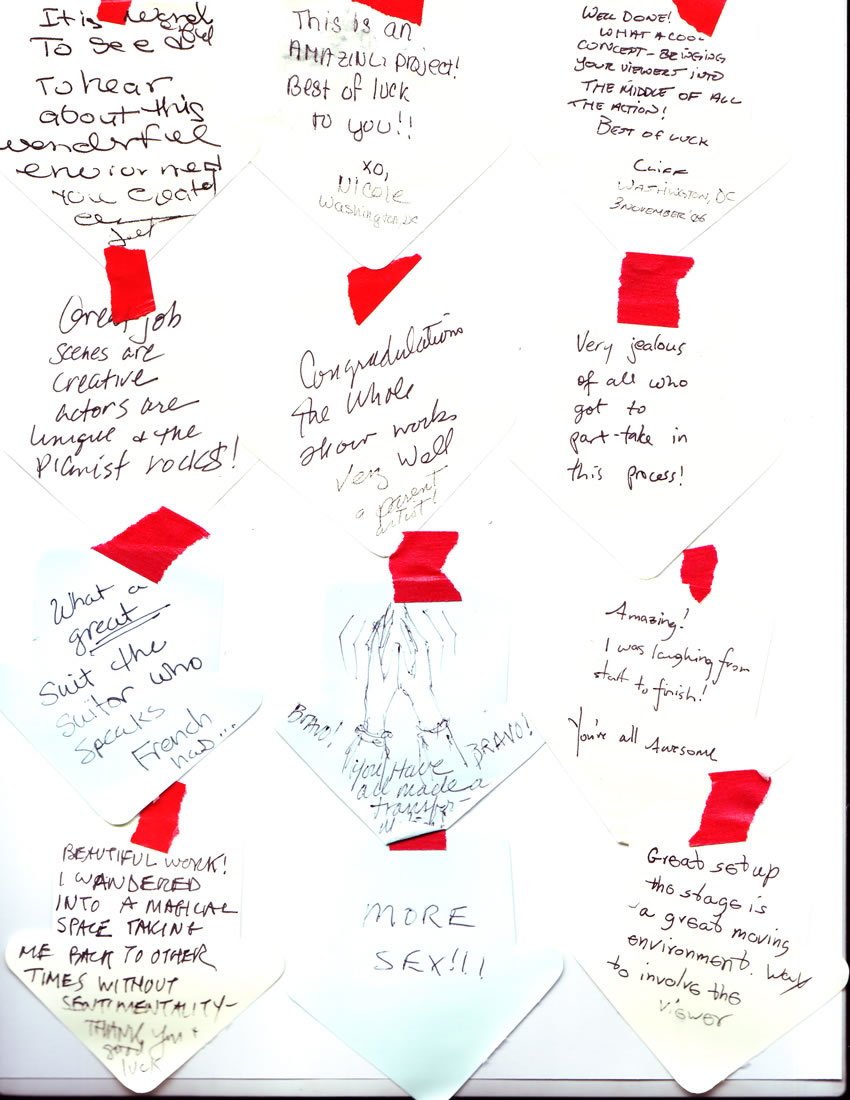 It is
To see &
To hear
about this
wonderful
you
This is an
AMAZING project!
Best of luck
to you!!
XO,
Nicole
Washington, DC
WELL DONE!
WHAT A COOL
CONCEPT - BRINGING
YOUR VIEWERS INTO
THE MIDDLE OF ALL
THE ACTION!
BEST OF LUCK
CLIFF
WASHINGTON, DC
3 NOVEMBER '06
Great job
scenes are
creative
actors are
unique & the
pianist rocks!
Congradulations
the whole
show works
very well
a parent
artist!
Very jealous
of all who
got to
part-take in
this process!
What a
great
suit the
suitor who
speaks
French
has...
BRAVO!
BRAVO!
You have
all made a
Amazing!
I was laughing from
start to finish!
You're all Awesome
BEAUTIFUL WORK!
I WANDERED
INTO A MAGICAL
SPACE TAKING
ME BACK TO OTHER
TIMES WITHOUT
SENTIMENTALITY-
THANK you &
good
luck
MORE
SEX!!!
Great set up
the stage is
a great moving
environment. Way
to involve the
viewer